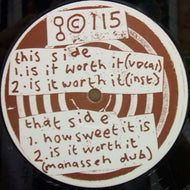 ©115
this side
1. is it worth it (vocal)
2. is it worth it (inst)
that side
1. how sweet it is
2. is it worth it
(manasseh dub)